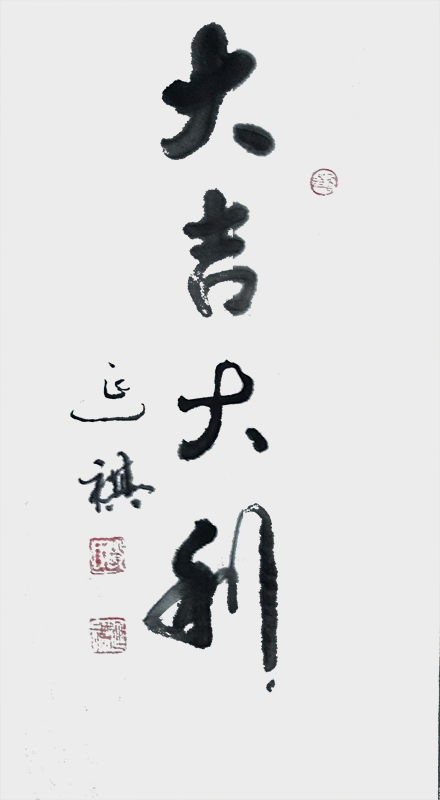 大吉大利
延祺